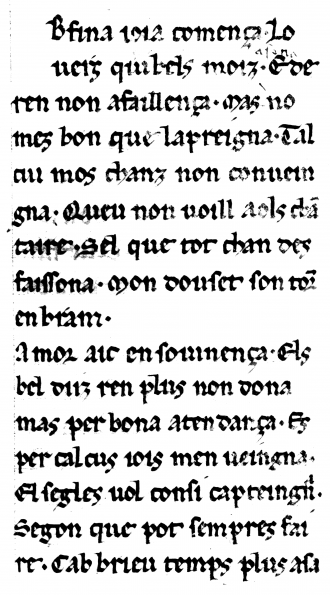 B fina ioia comença. Lo
afana
uerz qui bels moiz. E de
ren non afaillença. Mas no
mez bon que lapreigna. Tal
cui mos chanz non conuein
gna. Queu non uoill aols chā
taire. Sel que tot chan des
faissona. Mon douset son torn
en bram.
Amor aic en souinença. Els
bel diiz ren plus non dona
mas per bona atendança. Es
per calcus iois men ueingna.
El segles uol consi capteingn̄.
Segon que pot sempres fai
re. Cab brieu temps plus asa